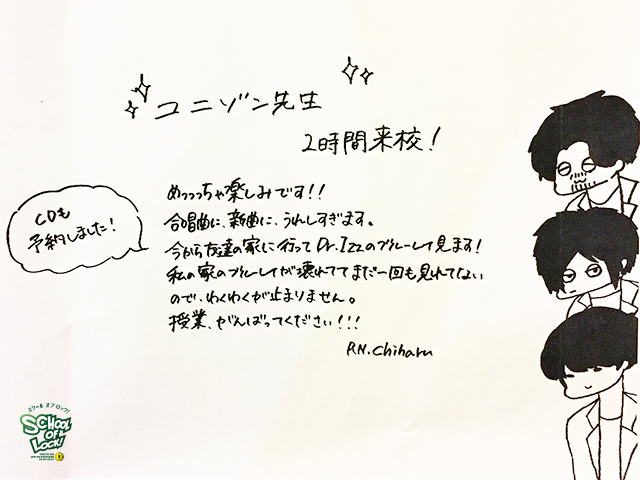 ユニゾン先生
2時間来校!
めっっっちゃ楽しみです!!
合唱曲に、新曲に、うれしすぎます。
今から友達の家に行ってDr.Izzのブルーレイ見ます!
私の家のブルーレイが壊れててまだ一回も見れてない
ので、わくわくが止まりません。
授業、がんばってください!!!
R.N.Chiharu
CDも
予約しました!
スクール オブ ロック!
SCHOOL
OF
LOCK!